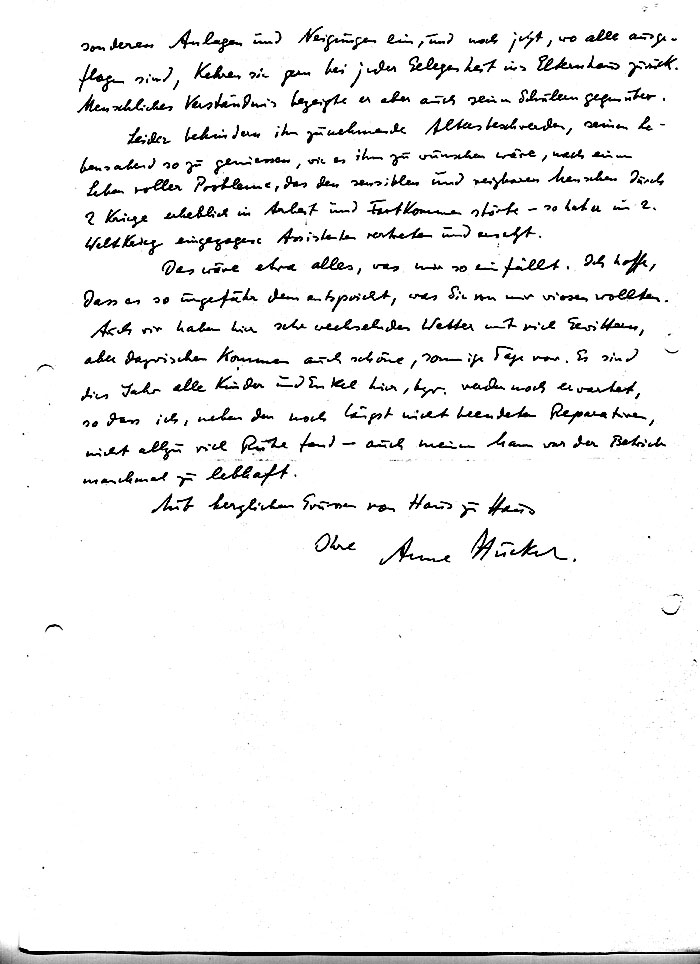 sonderen Anlagen und Neigungen ein, und noch jetzt, wo alle ausge-
flogen sind, kehren sie gern bei jeder Gelegenheit ins Elternhaus zurück.
Menschliches Verständnis bezeigte er aber auch seinen Schülern gegenüber.
Leider behindern ihn zunehmende Altersbeschwerden, seinen Le-
bensabend so zu geniessen, wie es ihm zu wünschen wäre, nach einem
Leben voller Probleme, das den sensiblen und reizbaren Menschen durch
2 Kriege erheblich in Arbeit und Fortkommen störte - so hat er im 2.
Weltkrieg eingezogene Assistenten vertreten und ersetzt.
Das wäre etwa alles, was mir so einfällt. Ich hoffe,
dass es so ungefähr dem entspricht, was Sie von mir wissen wollten.
Auch wir haben hier sehr wechselndes Wetter mit viel Gewittern,
aber dazwischen kommen auch schöne, sonnige Tage vor. Es sind
dies Jahr alle Kinder und Enkel hier, bzw. werden noch erwartet,
so dass ich, neben den noch längst nicht beendeten Reparaturen,
nicht allzu viel Ruhe fand - auch meinem Mann war der Betrieb
manchmal zu lebhaft.
Mit herzlichen Grüssen von Haus zu Haus
Ihre Anne Hückel.